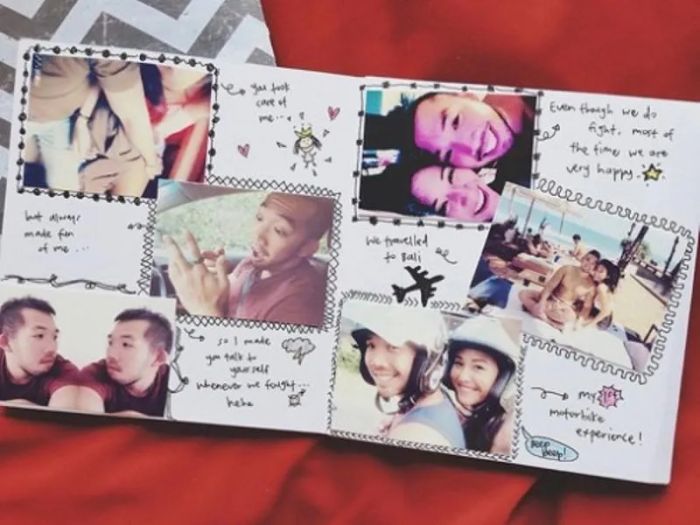 you took
care of
me...
but always
made fun
of me...
so I made
you talk to
yourself
whenever we fought...
hehe
Even though we do
fight, most of
the time we are
very happy.
We travelled
to Bali
my 1st
motorbike
experience!
Beep
beep!